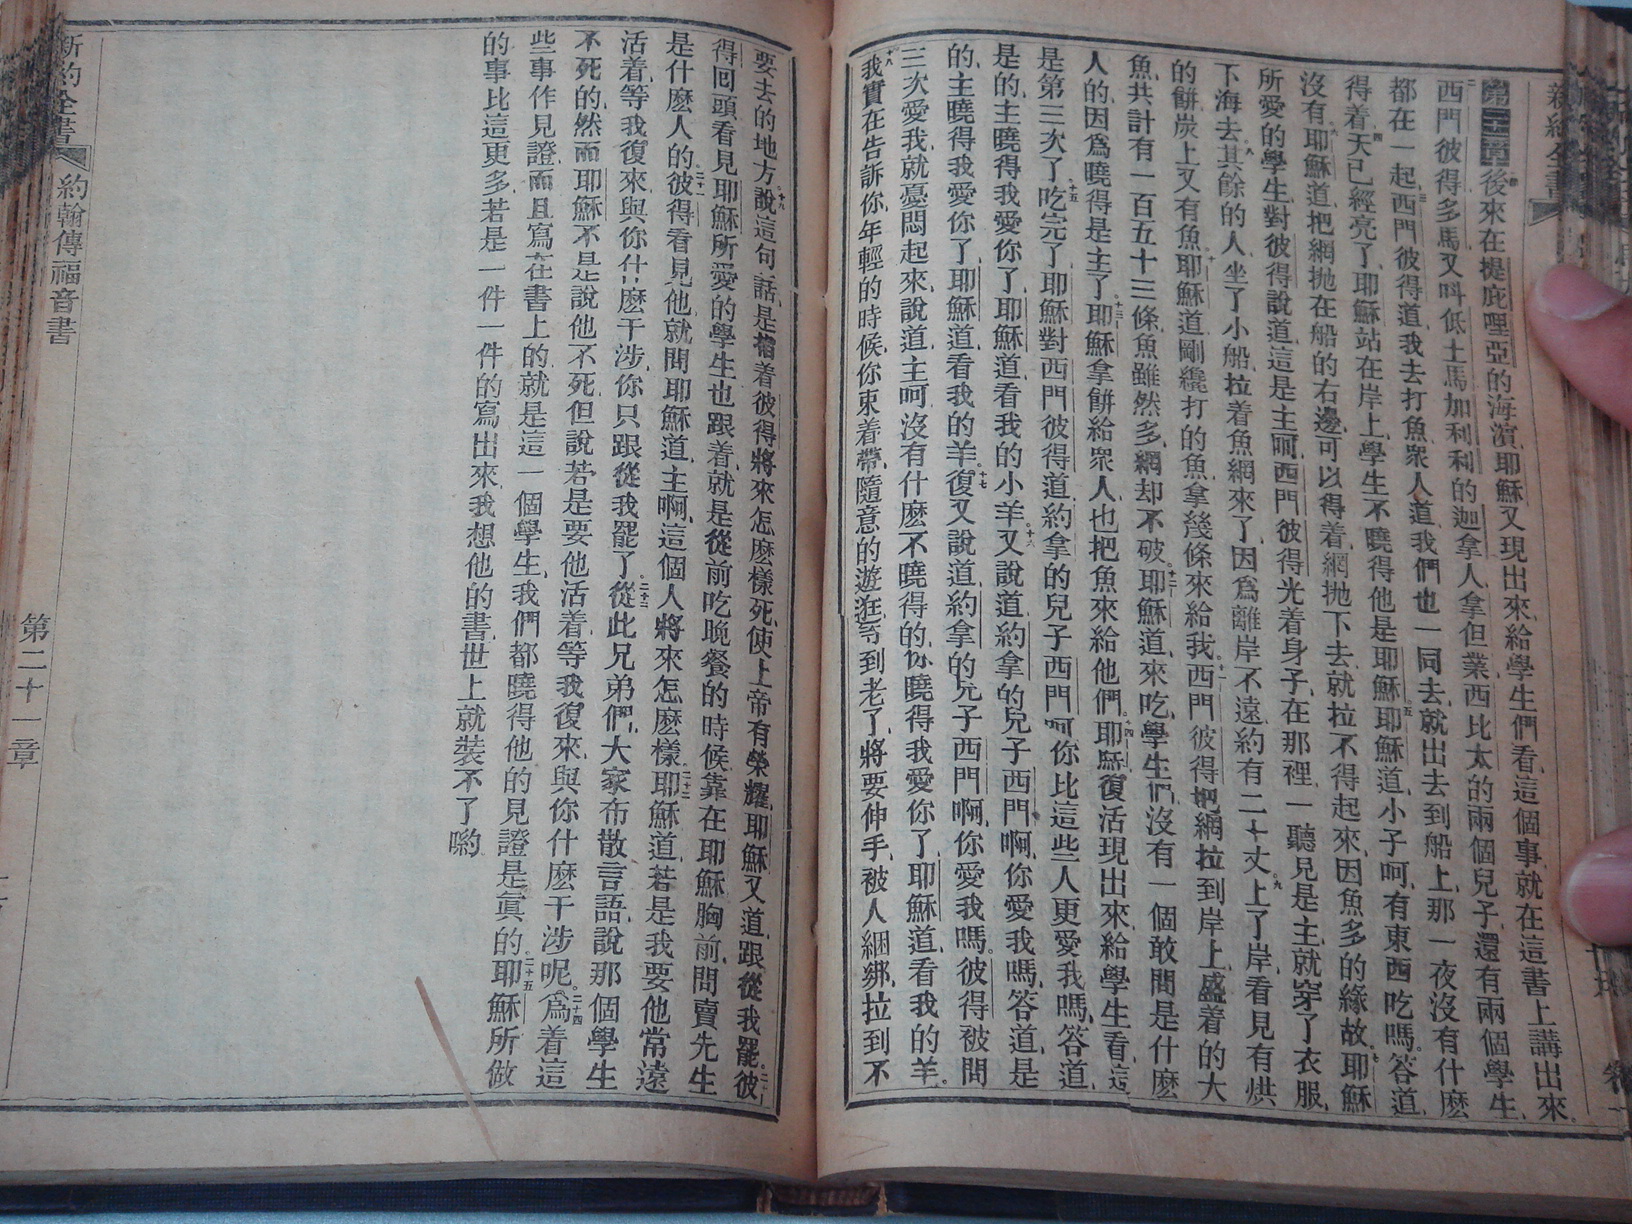 新約全書
現出來給學生們看這個事就在這書上講出來
後來在提庇哩亞的海濱耶穌又
西門彼得多馬又呌低土馬加利利的迦拿人拿但業西比太的兩個兒子還有兩個學生
都在一起西門彼得道我去打魚衆人道我們也一同去就出去到船上那一夜沒有什麽
得着天已經亮了耶穌站在岸上學生不曉得他是耶穌耶穌道小子呵有東西吃嗎答道
沒有耶穌道把網抛在船的右邊可以得着網抛下去就拉不得起來因魚多的緣故耶穌
所愛的學生對彼得說道這是主呵西門彼得光着身子在那裡一聽見是主就穿了衣服
下海去其餘的人坐了小船拉着魚網來了因爲離岸不遠約有二十丈上了岸看見有烘
的餅炭上又有魚耶穌道剛纔打的魚拿幾條來給我西門彼得把網拉到岸上盛着的大
魚共計有一百五十三條魚雖然多網却不破耶穌道來吃學生們沒有一個敢問是什麽
人的因爲曉得是主了耶穌拿餅給衆人也把魚來給他們耶穌復活現出來給學生看這
是第三次了吃完了耶穌對西門彼得道約拿的兒子西門呵你比這些人更愛我嗎答道
是的主曉得我愛你了耶穌道看我的小羊又說道約拿的兒子西門啊你愛我嗎答道是
的主曉得我愛你了耶穌道看我的羊復又說道約拿的兒子西門啊你愛我嗎彼得被問
三次愛我就憂悶起來說道主呵沒有什麽不曉得的你曉得我愛你了耶穌道看我的羊
我實在告訴你年輕的時候你束着帶隨意的遊逛等到老了將要伸手被人綑綁拉到不
要去的地方說這句話是指着彼得將來怎麽樣死使上帝有榮耀耶穌又道跟從我罷彼
得回頭看見耶穌所愛的學生也跟着就是從前吃晚餐的時候靠在耶穌胸前問賣先生
是什麽人的彼得看見他就問耶穌道主啊這個人將來怎麽樣耶穌道若是我要他常遠
活着等我復來與你什麽干涉你只跟從我罷了從此兄弟們大家布散言語說那個學生
不死的然而耶穌不是說他不死但說若是要他活着等我復來與你什麽干涉呢爲着這
些事作見證而且寫在書上的就是這一個學生我們都曉得他的見證是眞的耶穌所做
的事比這更多若是一件一件的寫出來我想他的書世上就裝不了喲
新約全書 約翰傳福音書 第二十一章